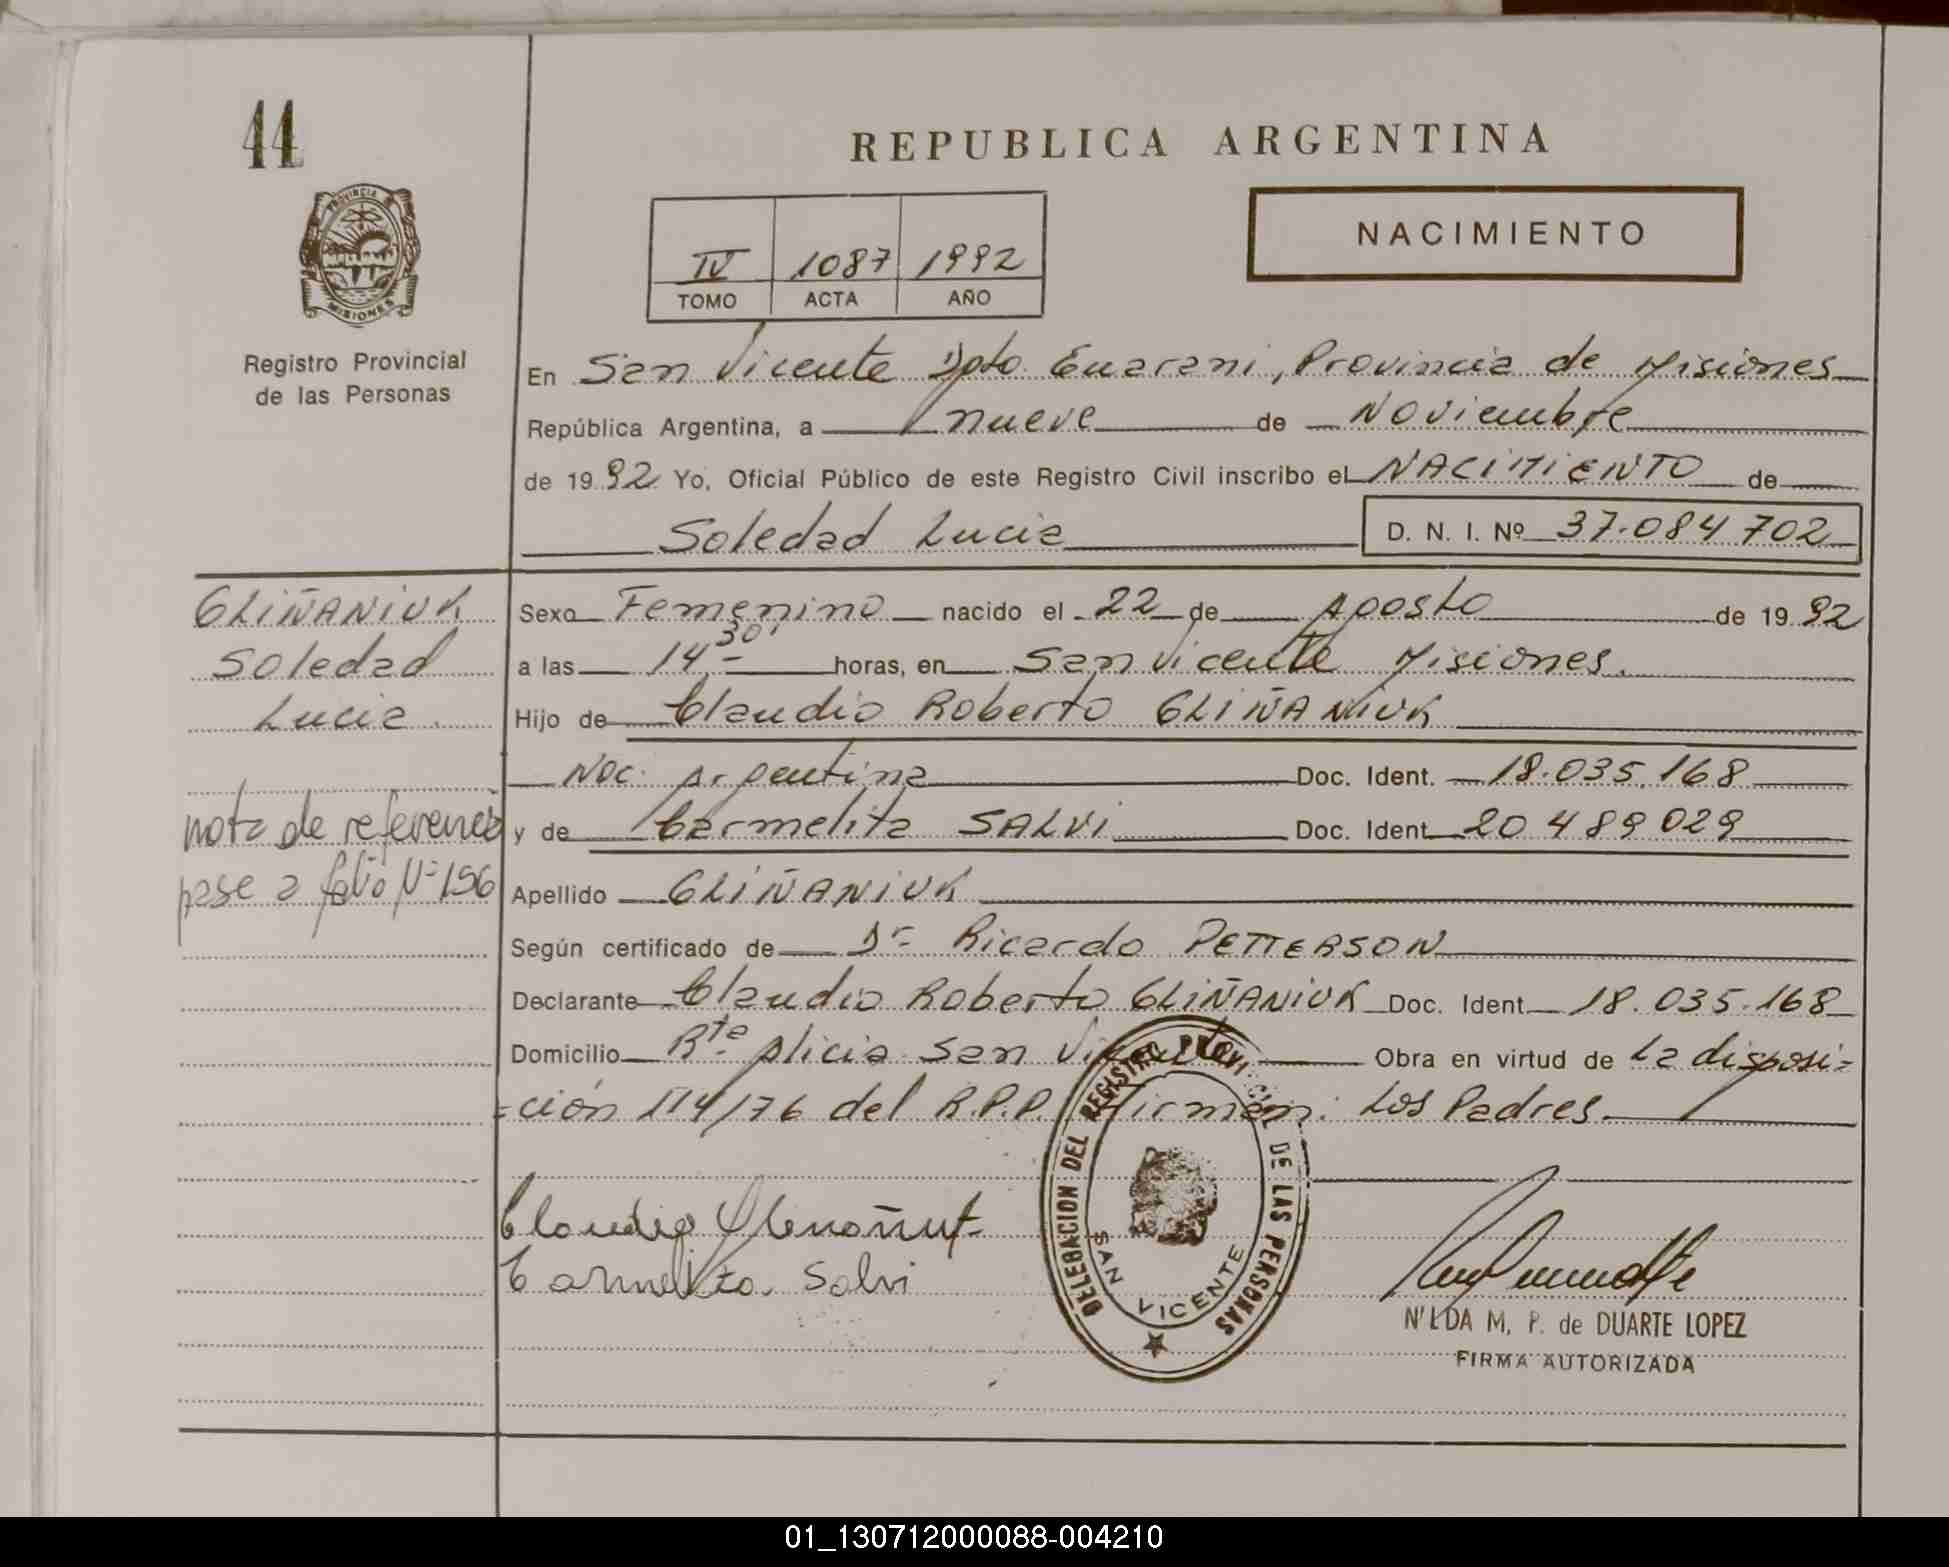 44
REPUBLICA ARGENTINA
PROVINCIA
MISIONES
Registro Provincial
de las Personas
IV 1087 1992
TOMO ACTA AÑO
NACIMIENTO
En San Vicente Dpto. Guarani, Provincia de Misiones
República Argentina, a nueve de Noviembre
de 19 92 Yo, Oficial Público de este Registro Civil inscribo el NACIMIENTO de
Soledad Lucia D. N. I. Nº 37.084.702
GLIÑANIUK
Soledad
Lucia.
nota de referencia
pase a folio Nº 196
Sexo Femenino nacido el 22 de Agosto de 19 92
a las 14,30' horas, en San Vicente Misiones.
Hijo de Claudio Roberto GLIÑANIUK
Nac. Argentina Doc. Ident. 18.035.168
y de Carmelita SALVI Doc. Ident 20 489 029
Apellido GLIÑANIUK
Según certificado de Dr. Ricardo PETTERSON
Declarante Claudio Roberto GLIÑANIUK Doc. Ident. 18.035.168
Domicilio Rta Alicia San Vicente Obra en virtud de La disposi=
=ción 114/76 del R.P.P. Firman: Los Padres.
Claudio
Carmelita Salvi
DELEGACION DEL REGISTRO PROVINCIAL DE LAS PERSONAS
SAN VICENTE
N'LDA M. P. de DUARTE LOPEZ
FIRMA AUTORIZADA
01_130712000088-004210